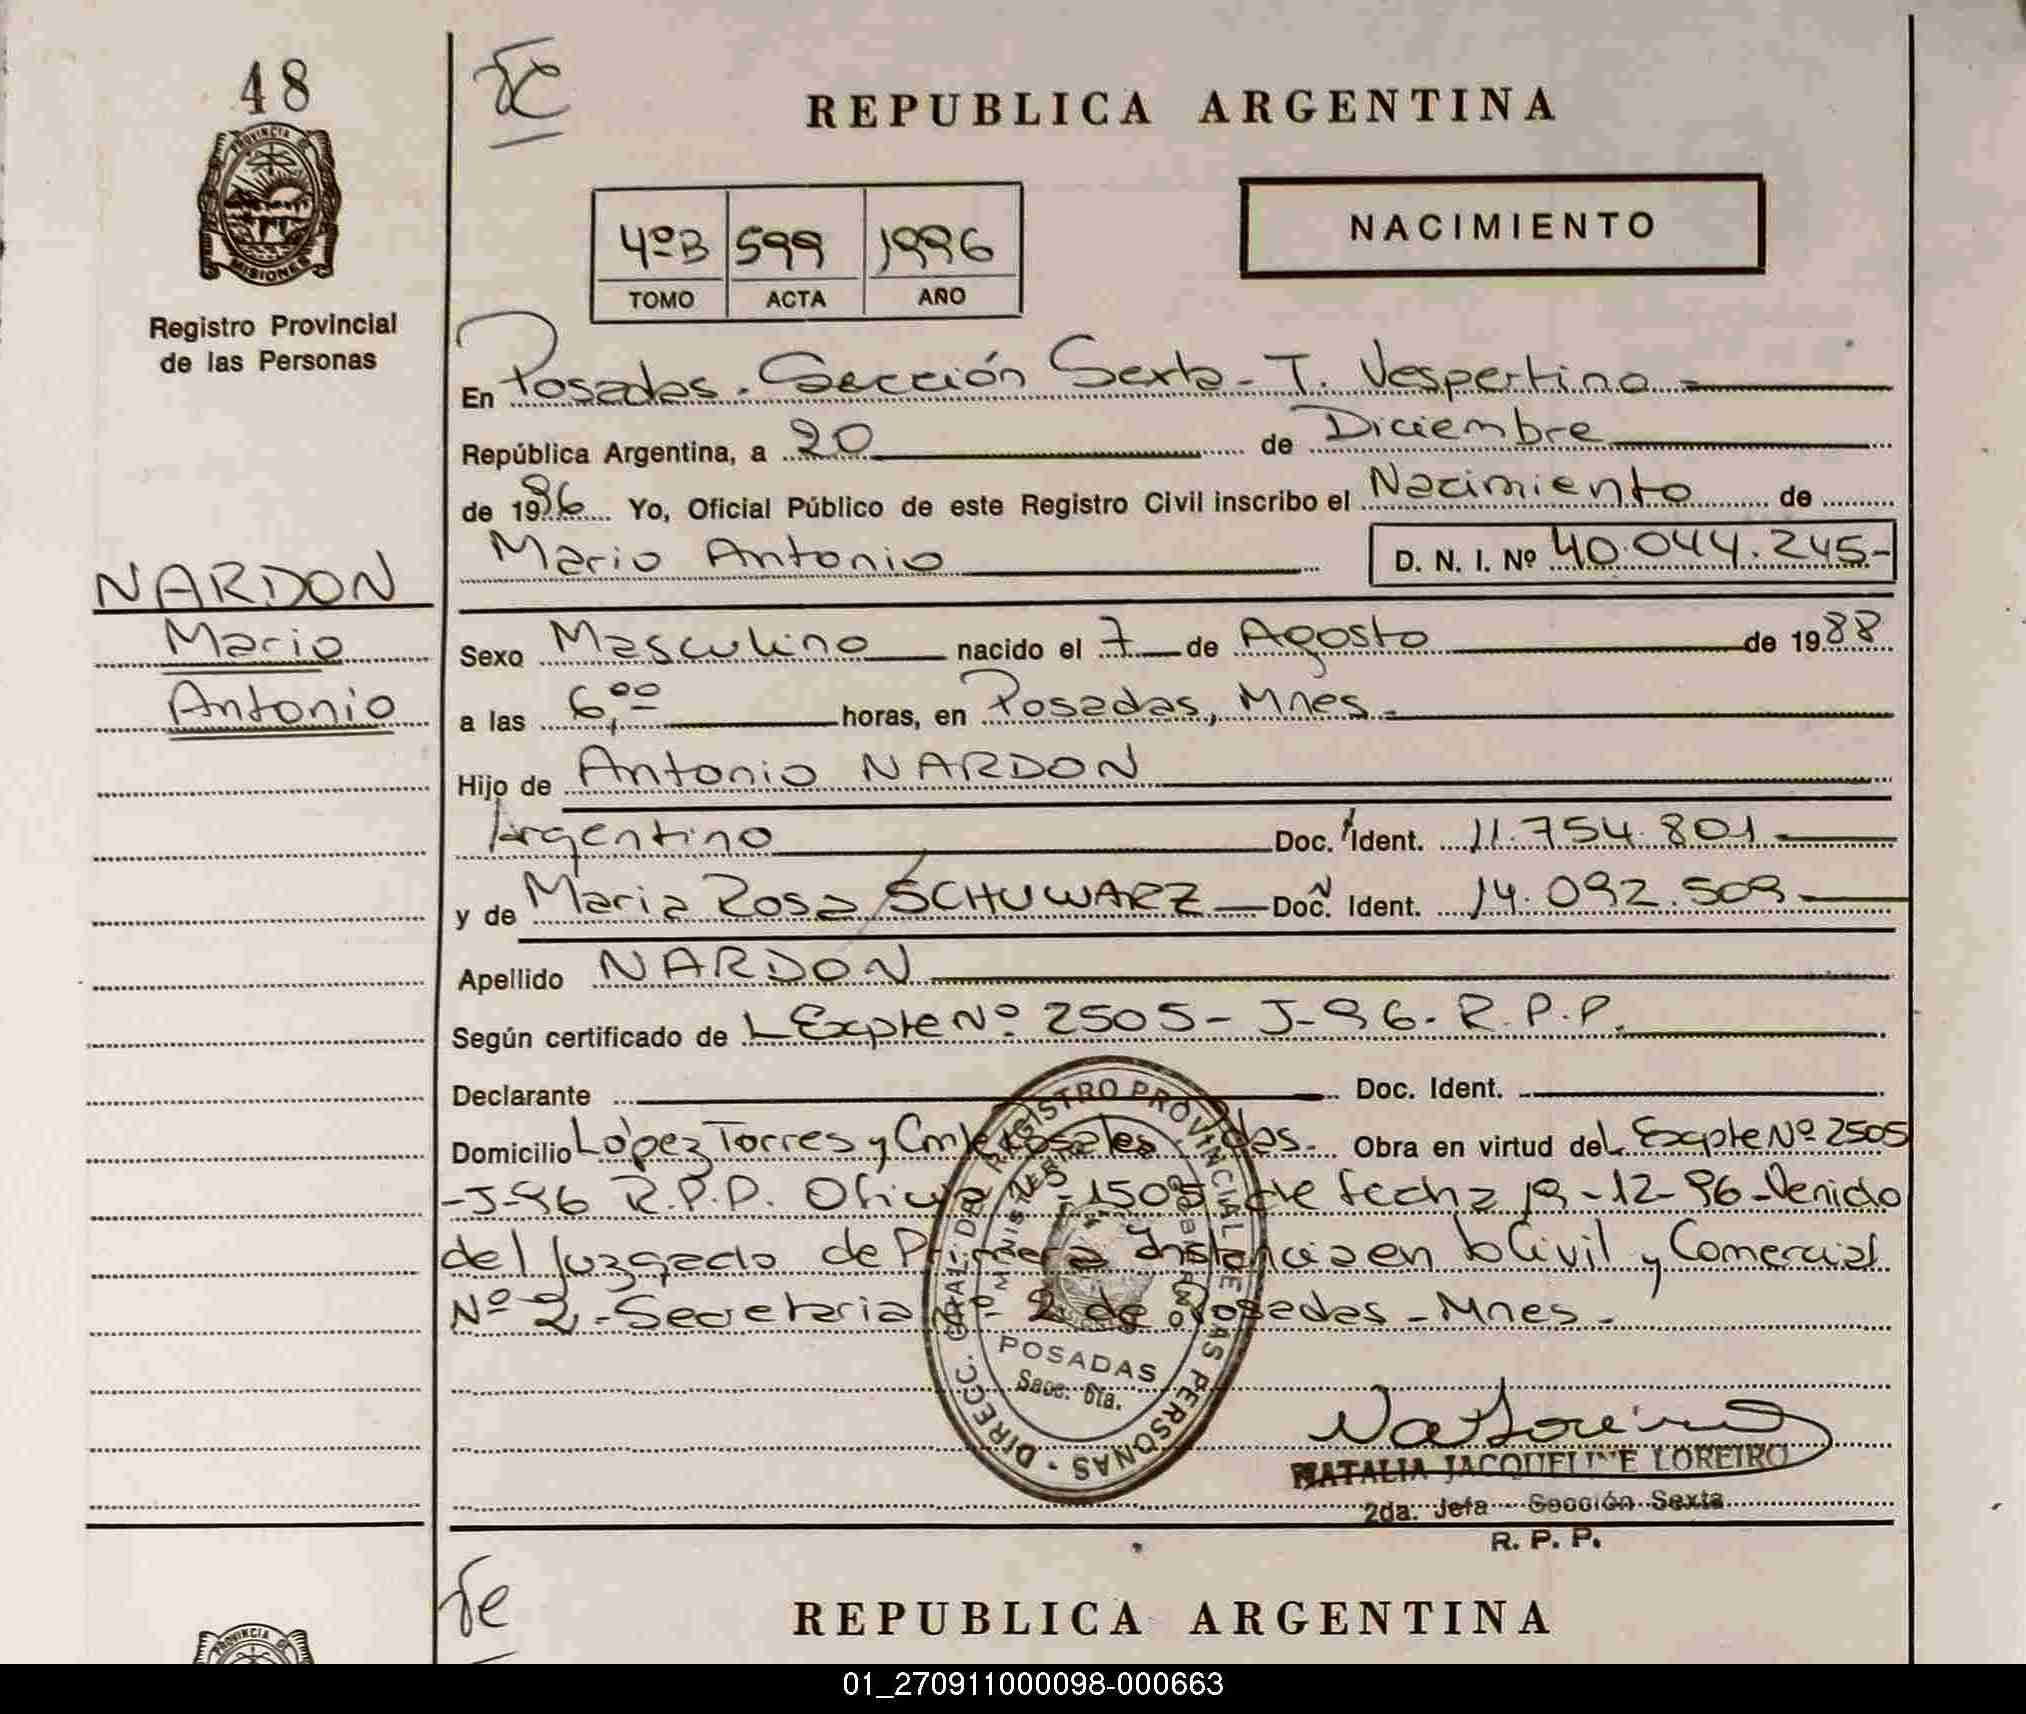 48
REPUBLICA ARGENTINA
PROVINCIA DE
MISIONES
Registro Provincial
de las Personas
4ºB 599 1996
TOMO ACTA AÑO
NACIMIENTO
En Posadas. Sección Sexta - T. Vespertino
República Argentina, a 20 de Diciembre
de 1996 Yo, Oficial Público de este Registro Civil inscribo el Nacimiento de
Mario Antonio D. N. I. Nº 40.044.245-
NARDON
Mario
Antonio
Sexo Masculino nacido el 7 de Agosto de 1988
a las 6,00 horas, en Posadas, Mnes.
Hijo de Antonio NARDON
Argentino Doc. Ident. 11.754.801
y de Maria Rosa SCHUWARZ Doc. Ident. 14.092.509
Apellido NARDON
Según certificado de L Expte Nº 2505- J-96- R.P.P.
Declarante Doc. Ident.
Domicilio López Torres y Cnte Rosales Pdas. Obra en virtud del Expte Nº 2505
-J-96 R.P.P. Oficio 1505 de fecha 19-12-96-Venido
del Juzgado de Primera Instancia en lo Civil y Comercial
Nº 2.-Secretaria Nº 2 de Posadas - Mnes.
DIRECC. GRAL. DEL REGISTRO PROVINCIAL DE LAS PERSONAS
MINISTERIO GOBIERNO
POSADAS
Secc. 6ta.
NATALIA JACQUELINE LOREIRO
2da. Jefa Sección Sexta
R. P. P.
REPUBLICA ARGENTINA
PROVINCIA DE
01_270911000098-000663